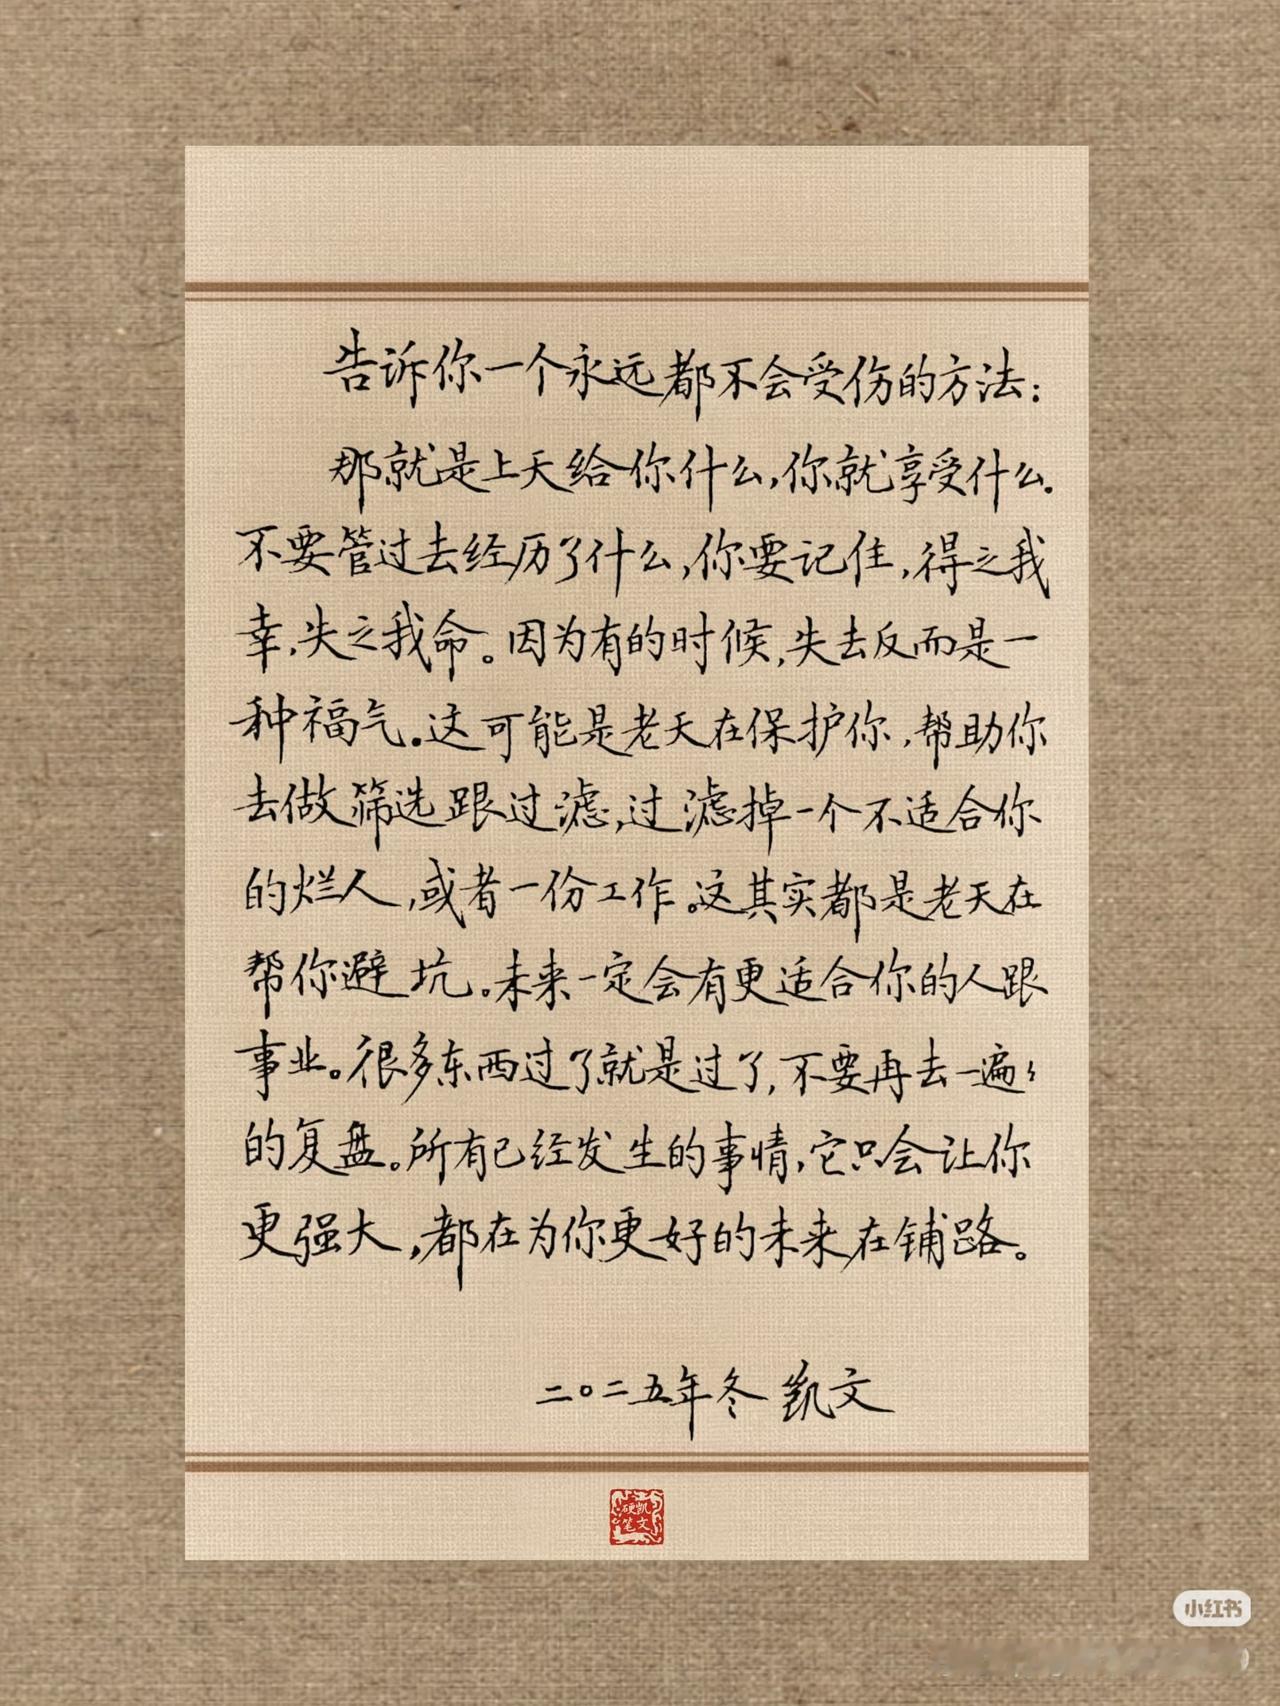 告诉你一个永远都不会受伤的方法：
那就是上天给你什么，你就享受什么。
不要管过去经历了什么，你要记住，得之我
幸，失之我命。因为有的时候，失去反而是一
种福气。这可能是老天在保护你，帮助你
去做筛选跟过滤，过滤掉一个不适合你
的烂人，或者一份工作。这其实都是老天在
帮你避坑。未来一定会有更适合你的人跟
事业。很多东西过了就是过了，不要再去一遍〻
的复盘。所有已经发生的事情，它只会让你
更强大，都在为你更好的未来在铺路。
二〇二五年冬 凯文
凯文硬笔
小红书